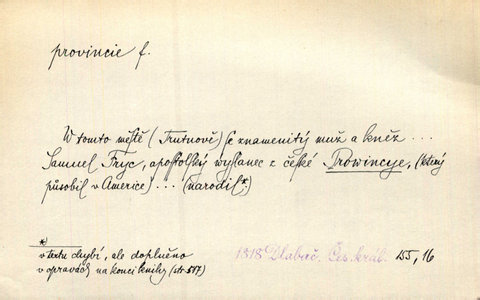 provincie f.
W tomto městě (Trutnově) se znamenitý muž a kněz ...
Samuel Fryc, apostolský wyslanec z české Prowincye, (který
působil v Americe) ... (narodil*)
*)
v textu chybí, ale doplněno
v opravách na konci knihy (str 517)
1818 Dlabač. Čes. král. 155, 16